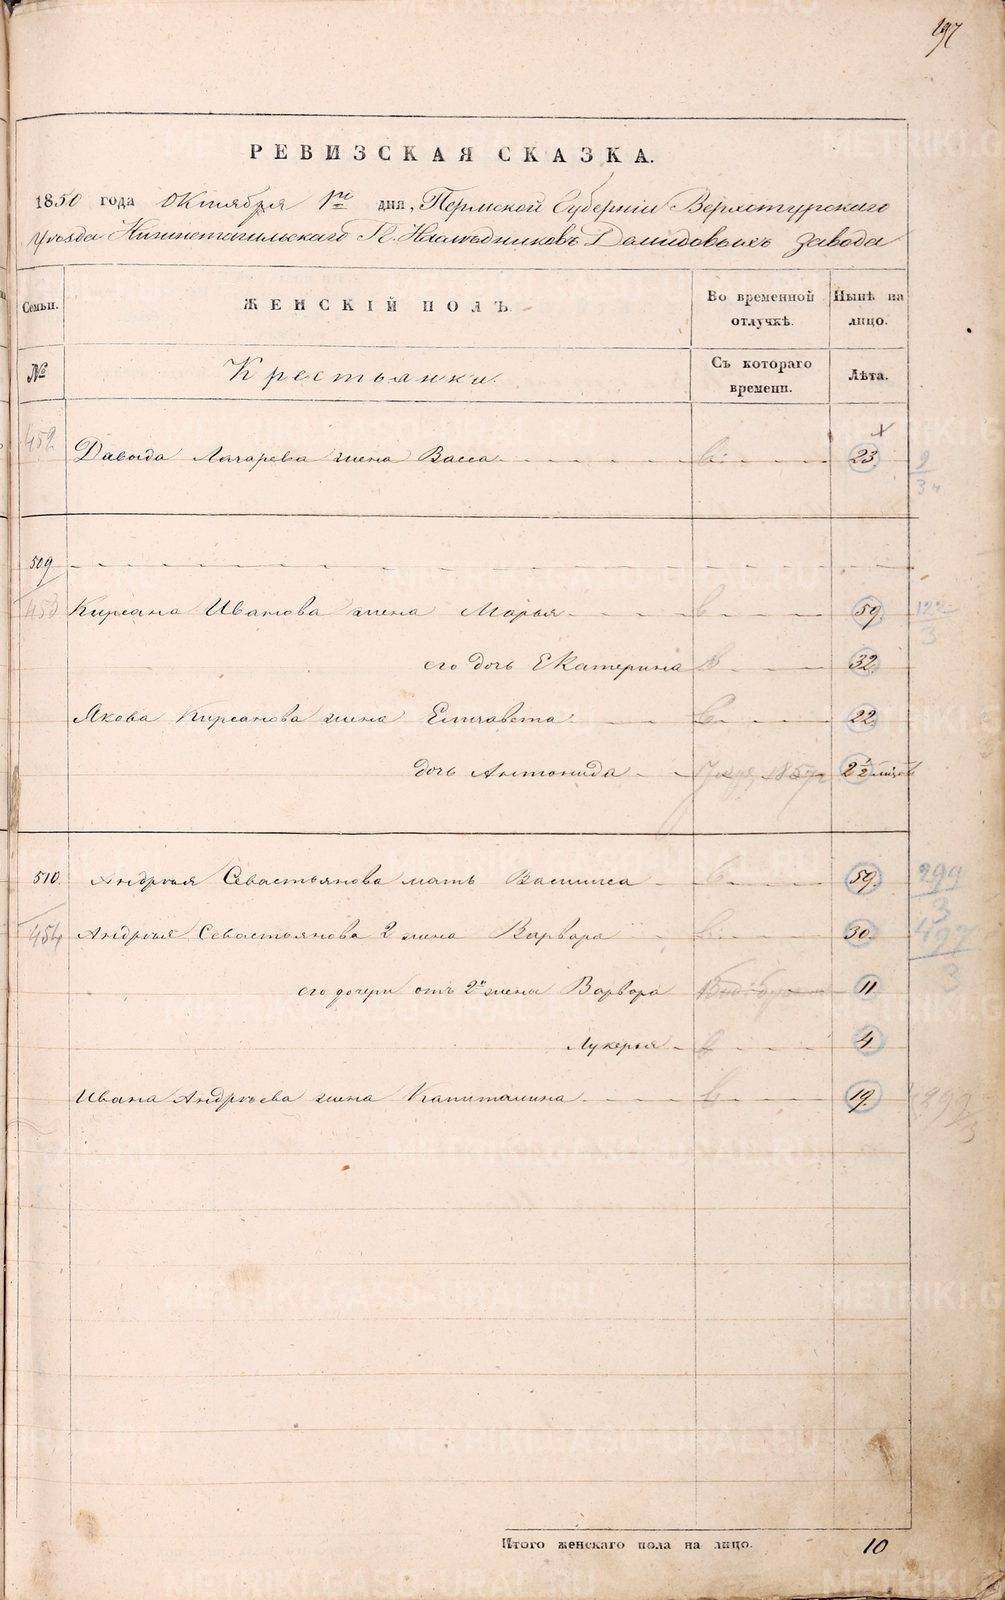 197
РЕВИЗСКАЯ СКАЗКА.
1850 года Октября 1го дня, Пермской Губерніи Верхотурскаго
Уѣзда Нижнетагильскаго Г. Наслѣдниковъ Демидовыхъ завода
Семьи. ЖЕНСКІЙ ПОЛЪ. Во временной отлучкѣ. Нынѣ на лицо.
№ Крестьянки. Съ котораго времени. Лѣта.
452 Давыда Лазарева жена Васса 23
9
34
509
453 Кирсана Иванова жена Марья 59 122
3
его дочь Екатерина 32
Якова Кирсанова жена Елизавета 22
дочь Антонида 1857 2½ мѣсяц
510. Андрея Севастьянова мать Василиса 59. 299
3
454 Андрея Севастьянова 2 жена Варвара 30. 497
3
его дочери отъ 2й жены Варвара 11
Лукерья 4
Ивана Андреева жена Капиталина 19. 299
3
Итого женскаго пола на лицо. 10
METRIKI.GASO-URAL.RU